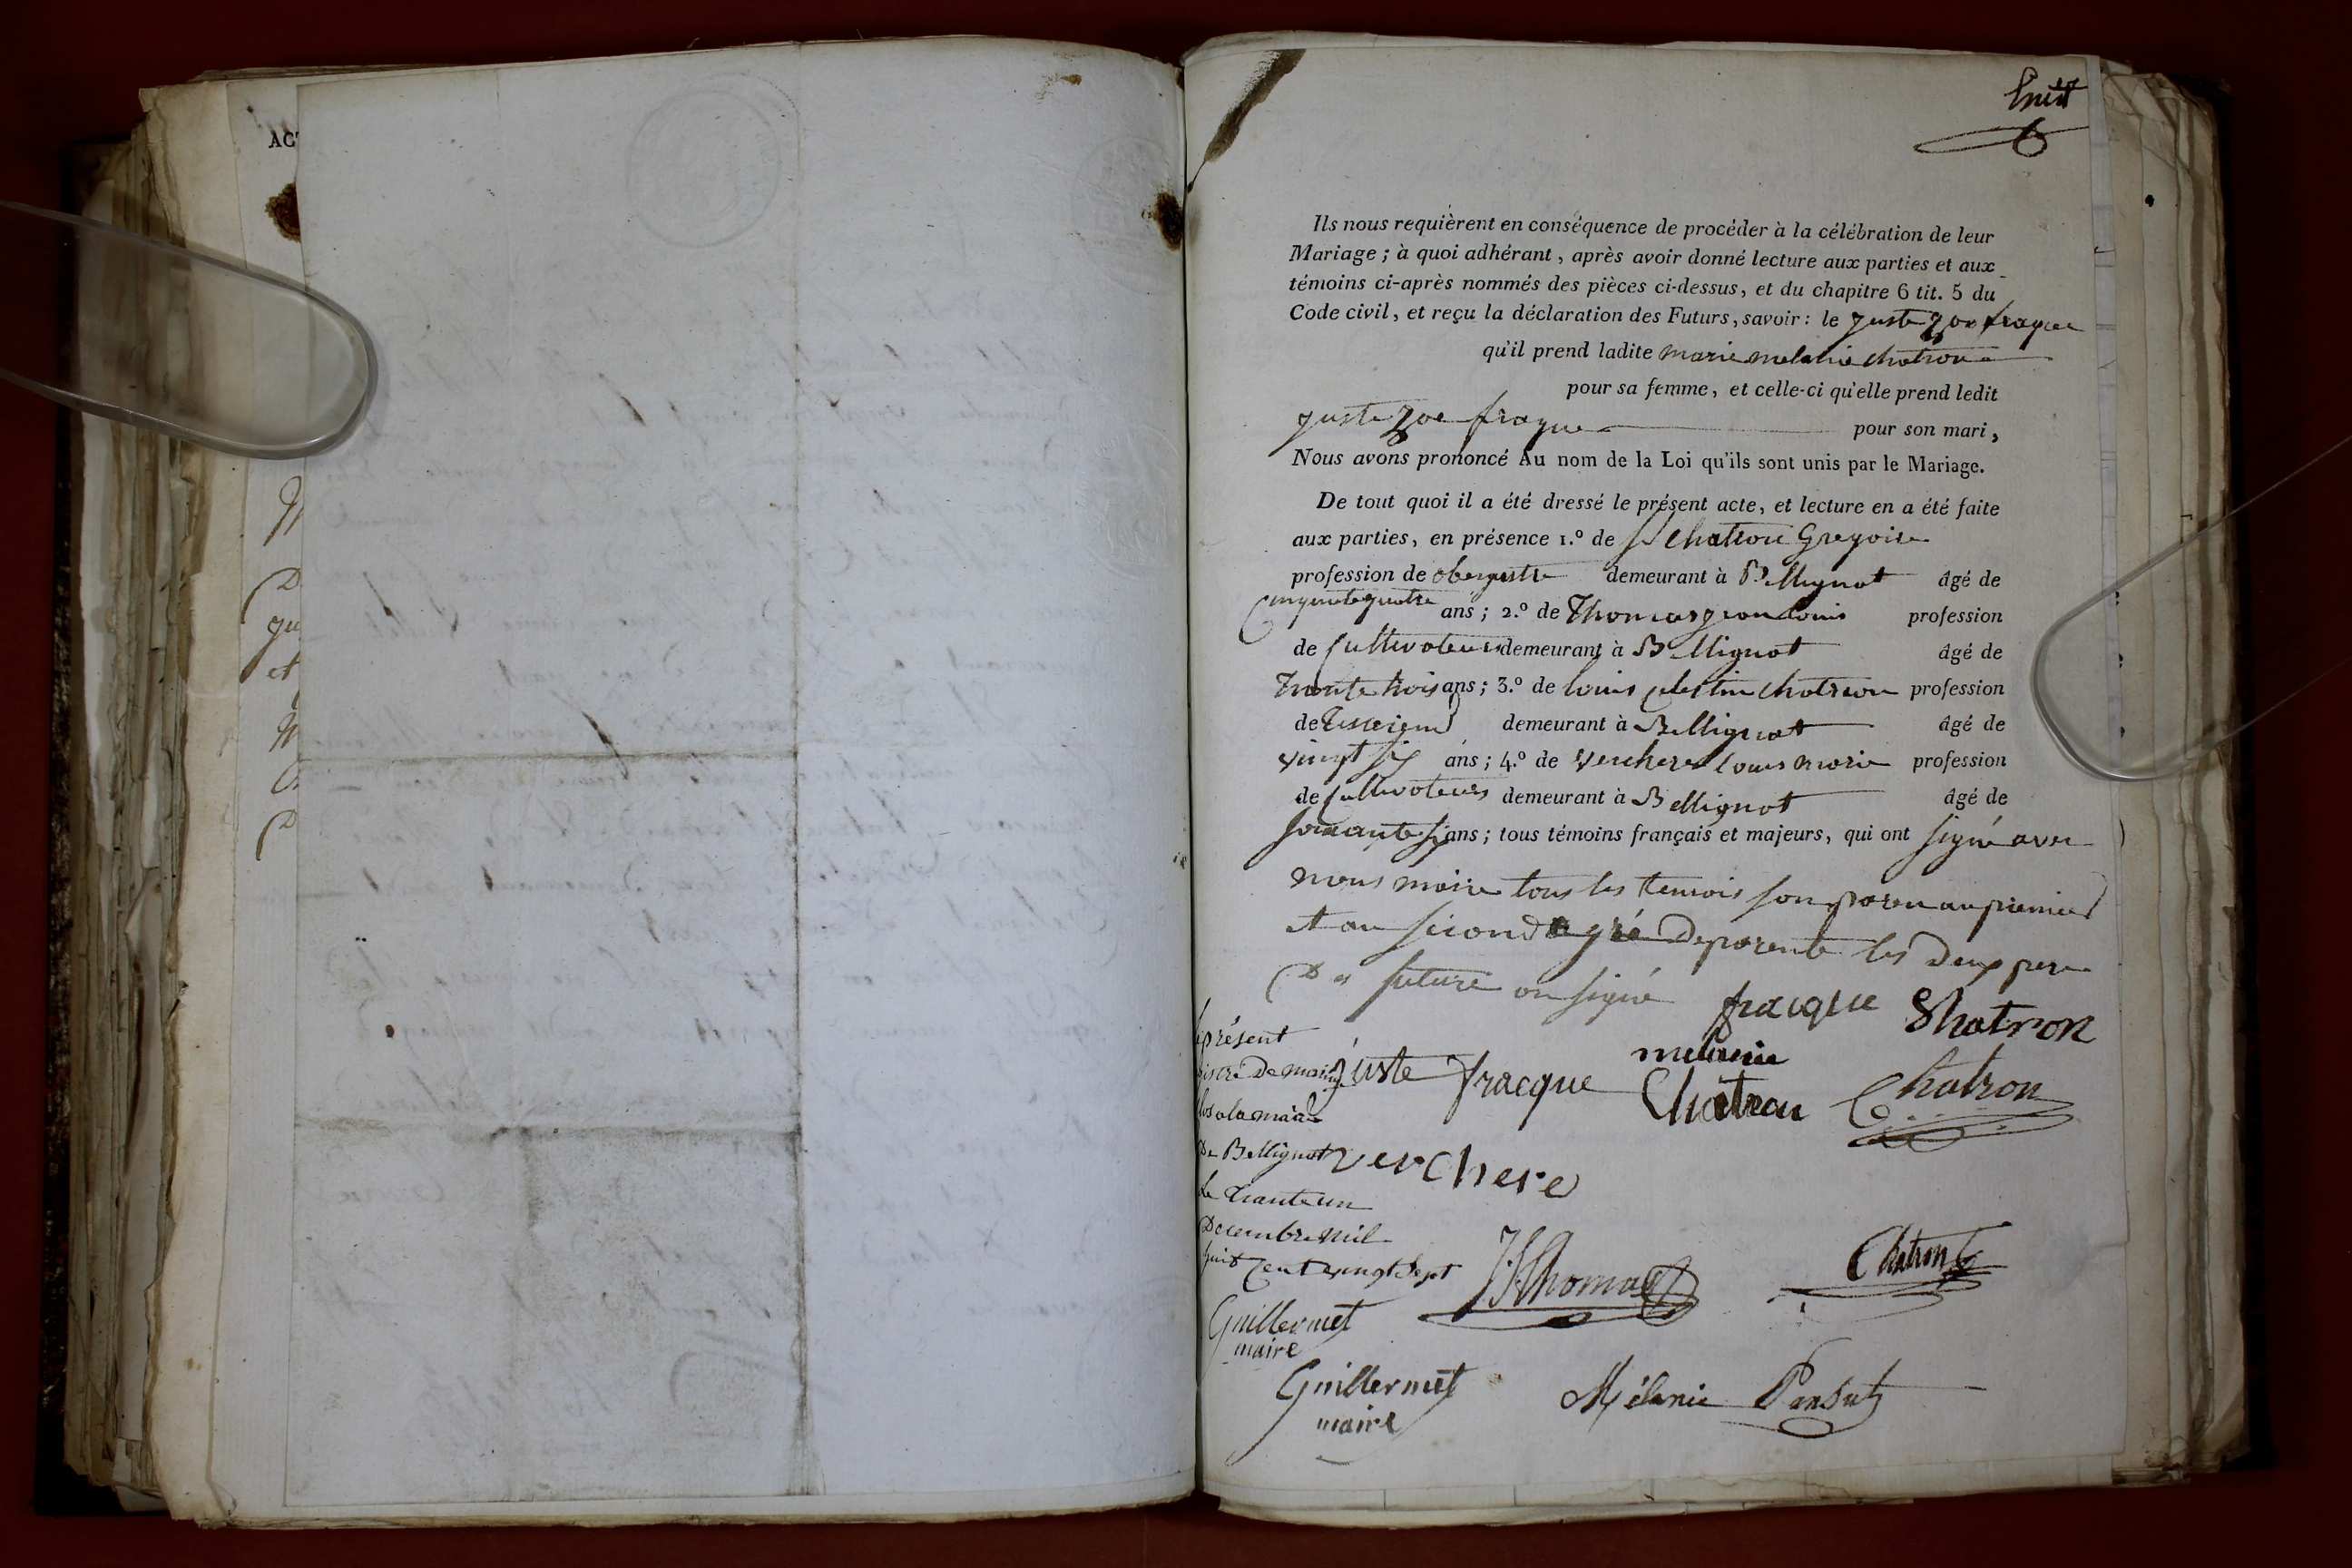 AC
huit
Ils nous requièrent en conséquence de procéder à la célébration de leur
Mariage ; à quoi adhérant, après avoir donné lecture aux parties et aux
témoins ci-après nommés des pièces ci-dessus, et du chapitre 6 tit. 5 du
Code civil, et reçu la déclaration des Futurs, savoir : le juste zoe fraque
qu'il prend ladite marie melanie chatron
pour sa femme, et celle-ci qu'elle prend ledit
juste zoe fraque pour son mari,
Nous avons prononcé Au nom de la Loi qu'ils sont unis par le Mariage.
De tout quoi il a été dressé le présent acte, et lecture en a été faite
aux parties, en présence 1.º de Sr Chatron Gregoire
profession de obergiste demeurant à Bellignat âgé de
Cinquante quatre ans ; 2.º de Thomas jean louis profession
de Cultivateur demeurant à Bellignat âgé de
Trente trois ans ; 3.º de louis celestin chatron profession
de Tisserand demeurant à Bellignat âgé de
vingt six ans ; 4.º de verchere louis marie profession
de Cultivateurs demeurant à Bellignat âgé de
soixante six ans ; tous témoins français et majeurs, qui ont signé avec
nous maire tous les temois son paren au premier
et au second degré de parente les deux pere
Des future on signé fracque Chatron
le présent
gistre de mariage juste fracque melanie
Chatron Chatron
clos a la mairie
De Bellignat verchere
Le trante un
Decembre mil
huit cent vingt sept JLThomas Chatron
Guillermet
maire
Guillermet Mélanie
maire